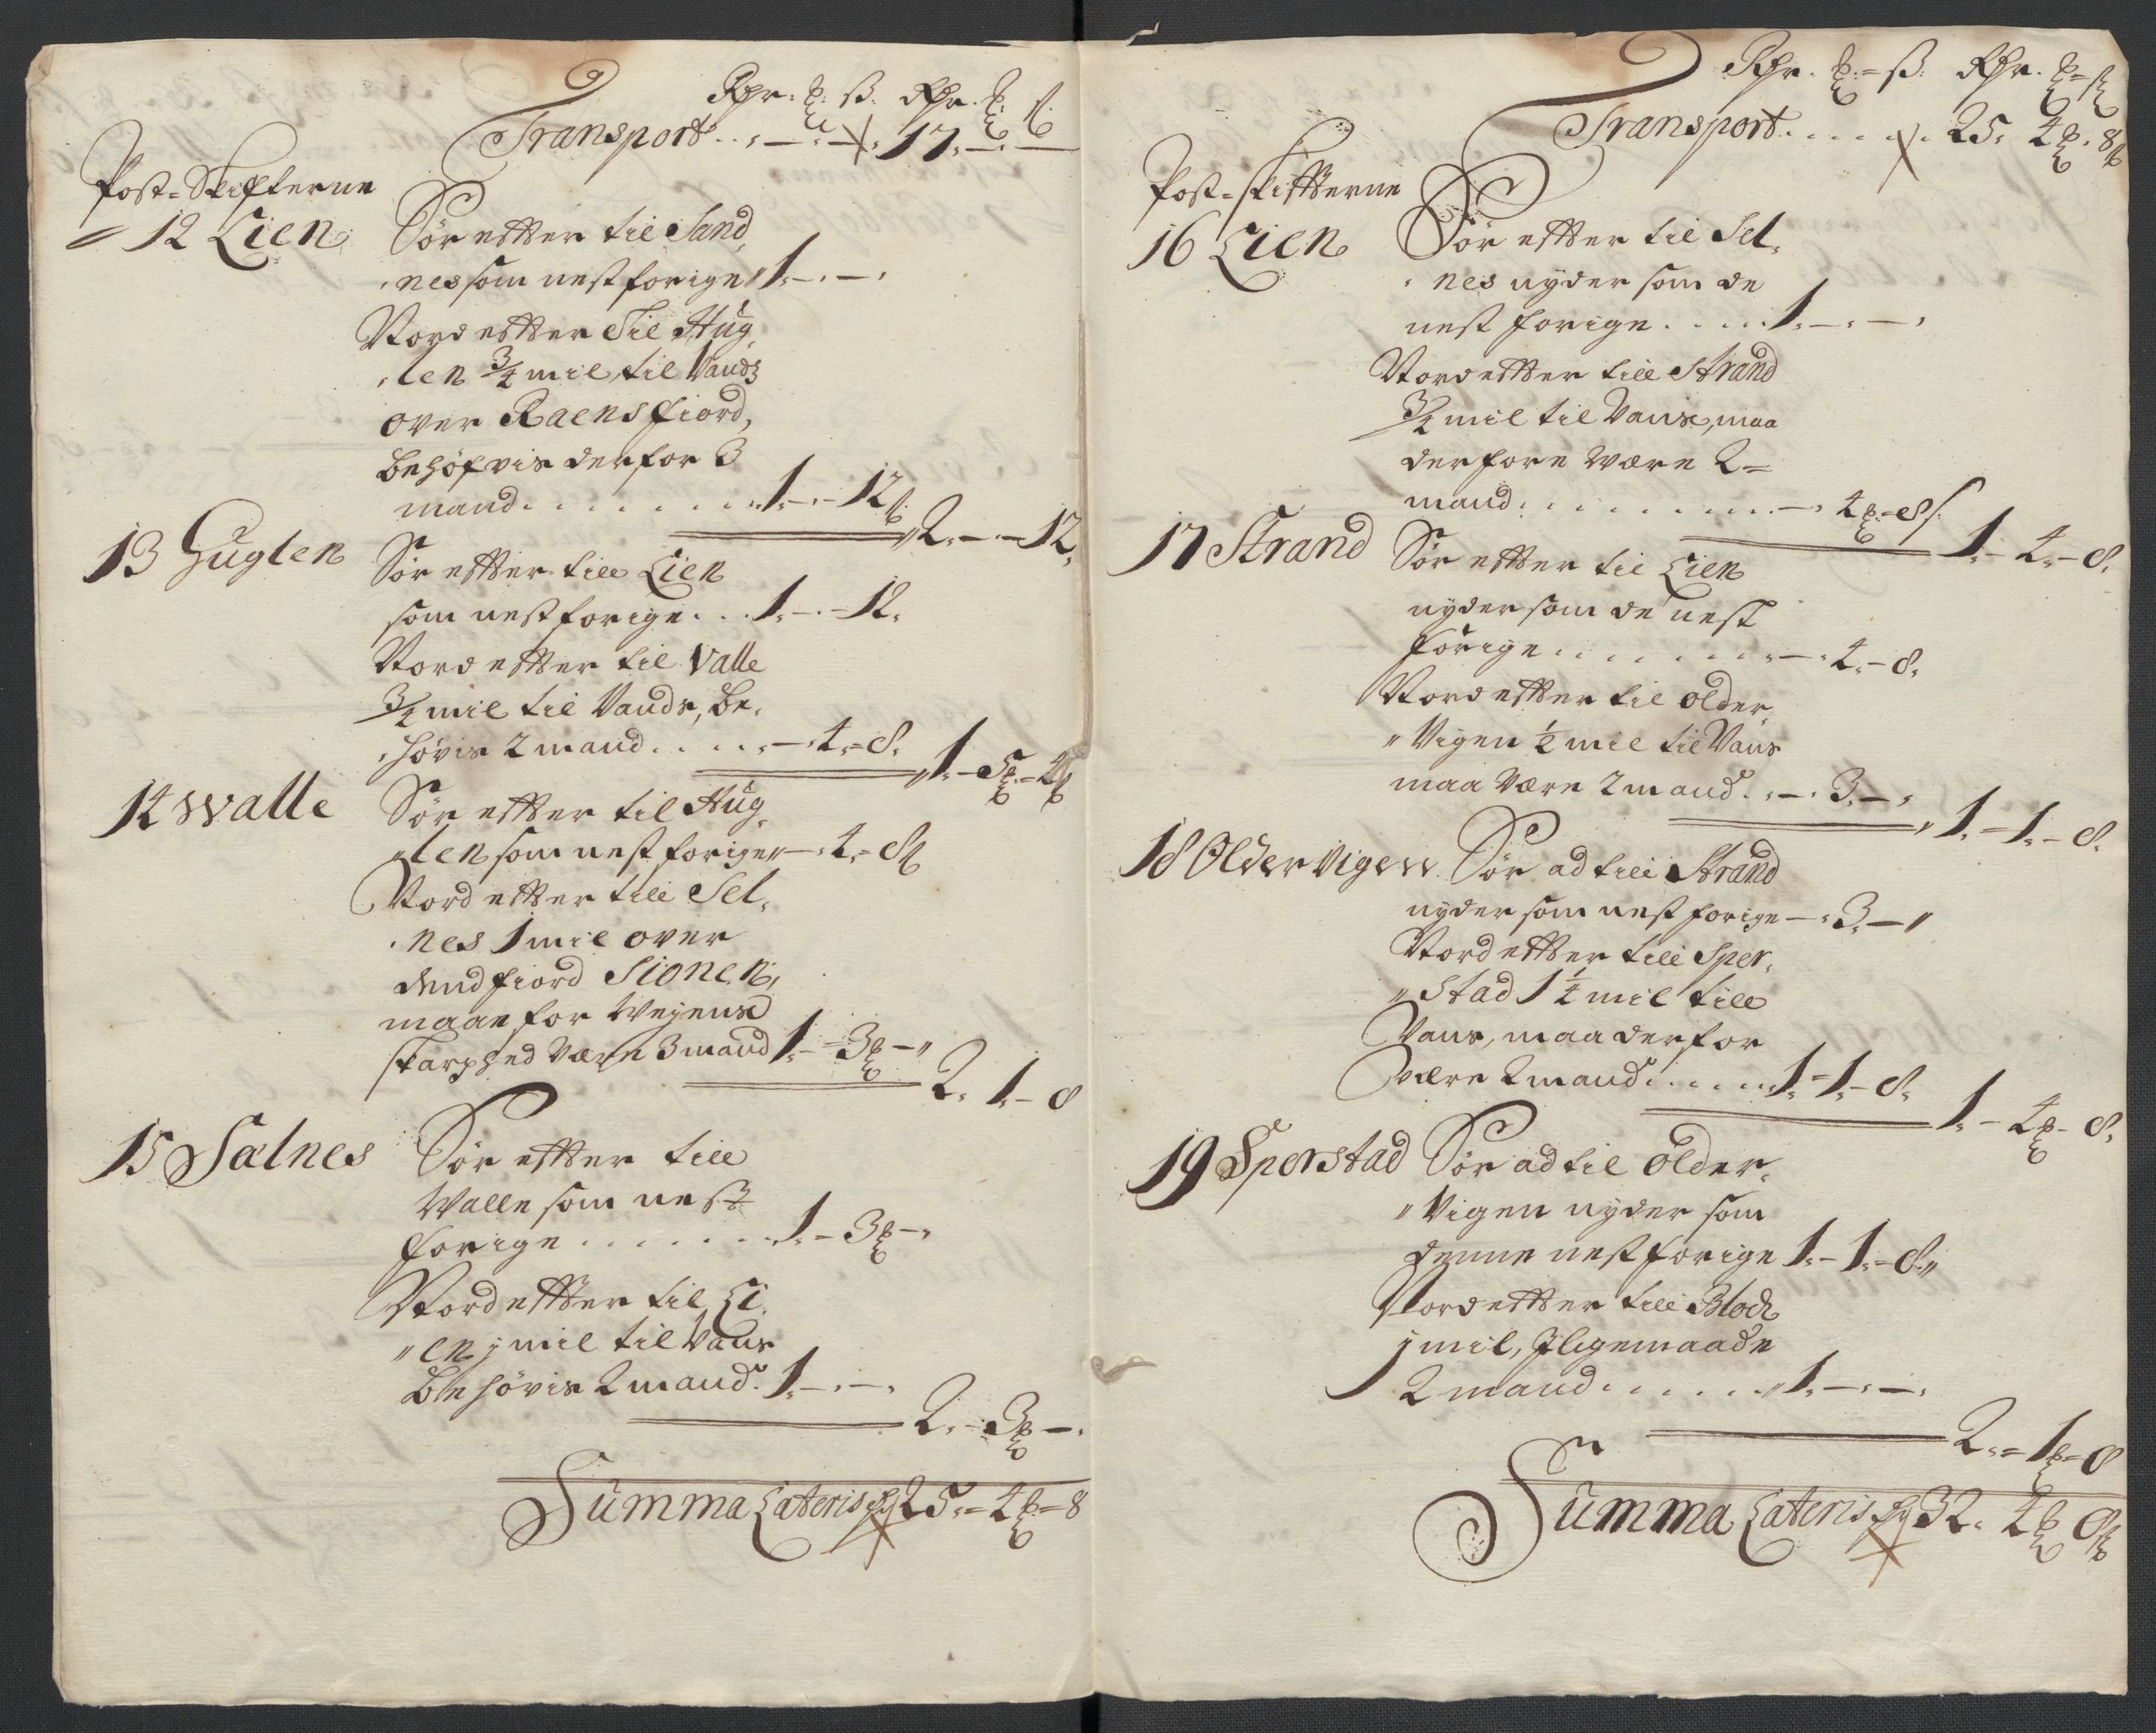 Rdr. ß. Rdr.
Transport . . 17. — —
Post-Skifterne
12 Lien Sør effter til Sand
nes som nest forige 1. — . — .
Nord effter Til Hug
len 3/4 mil, til Vands
over Raensfiord,
behøfvis derfor 3
mand . . . . . . . 1. — 12
2. — 12.
13 Huglen Sør effter till Lien
som nest forige . . . 1. — . — 12.
Nord effter til Valle
3/4 mil til Vands, be,
høvis 2 mand . . . . — 4. — 8.
1 — 5 — 4
14 Walle Sør effter til Hug
len som nest forige — 4. — 8
Nord effter till Sel,
nes 1 mil over
dend fiord Sionen,
maae for Wejens
skarphed være 3 mand 1. — 3 —
2. 1. — 8
15 Sælnes Sør effter till
Walle som nest
forige . . . . . . . 1. — 3 —
Nord effter til Li,
en j mil til Vans
behøvis 2 mand . 1. — . — .
2. — 3 — .
Summa Lateris 25. — 4 — 8
Rdr. ß. Rdr.
Transport . . . . . 25. 4. 8
Post-skiffterne
16 Lien Sør effter til Sel,
nes nyder som de
nest forige . . . . . 1. — . — .
Nord effter till Strand
3/4 mil til Vans, maa
derfore være 2
mand . . . . . . . . . — 4 — 8
1. — 4. — 8.
17 Strand Sør effter til Lien
nyder som de nest
forige . . . . . . . . — . 4. — 8.
Nord effter til Older,
Vigen 1/2 mil til Vans
maa være 2 mand . . — . 3. — .
1. — 1. — 8.
18 Oldervigen Sør ad till Strand
nyder som nest forige — . 3. —
Nord effter till Sper,
stad 1 1/4 mil till
Vans, maa derfor
være 2 mand . . . . . 1. — 1. — 8.
1. — 4 — 8.
19 Sperstad Sør ad til Older,
Vigen nyder som
denne nest forige 1. — 1. — 8.
Nord effter till Bloch
j mil, Jligemaade
2 mand . . . . . . 1. — . — .
2. — 1 — 8
Summa Lateris 32. 4 8